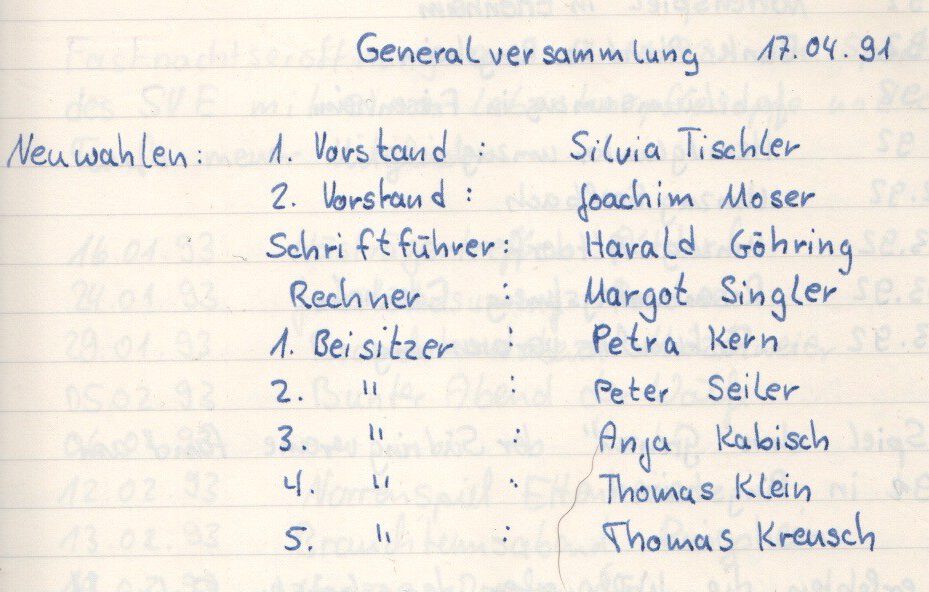 Generalversammlung 17.04.91
Neuwahlen: 1. Vorstand : Silvia Tischler
2. Vorstand : Joachim Moser
Schriftführer : Harald Göhring
Rechner : Margot Singler
1. Beisitzer : Petra Kern
2. " : Peter Seiler
3. " : Anja Kabisch
4. " : Thomas Klein
5. " : Thomas Kreusch